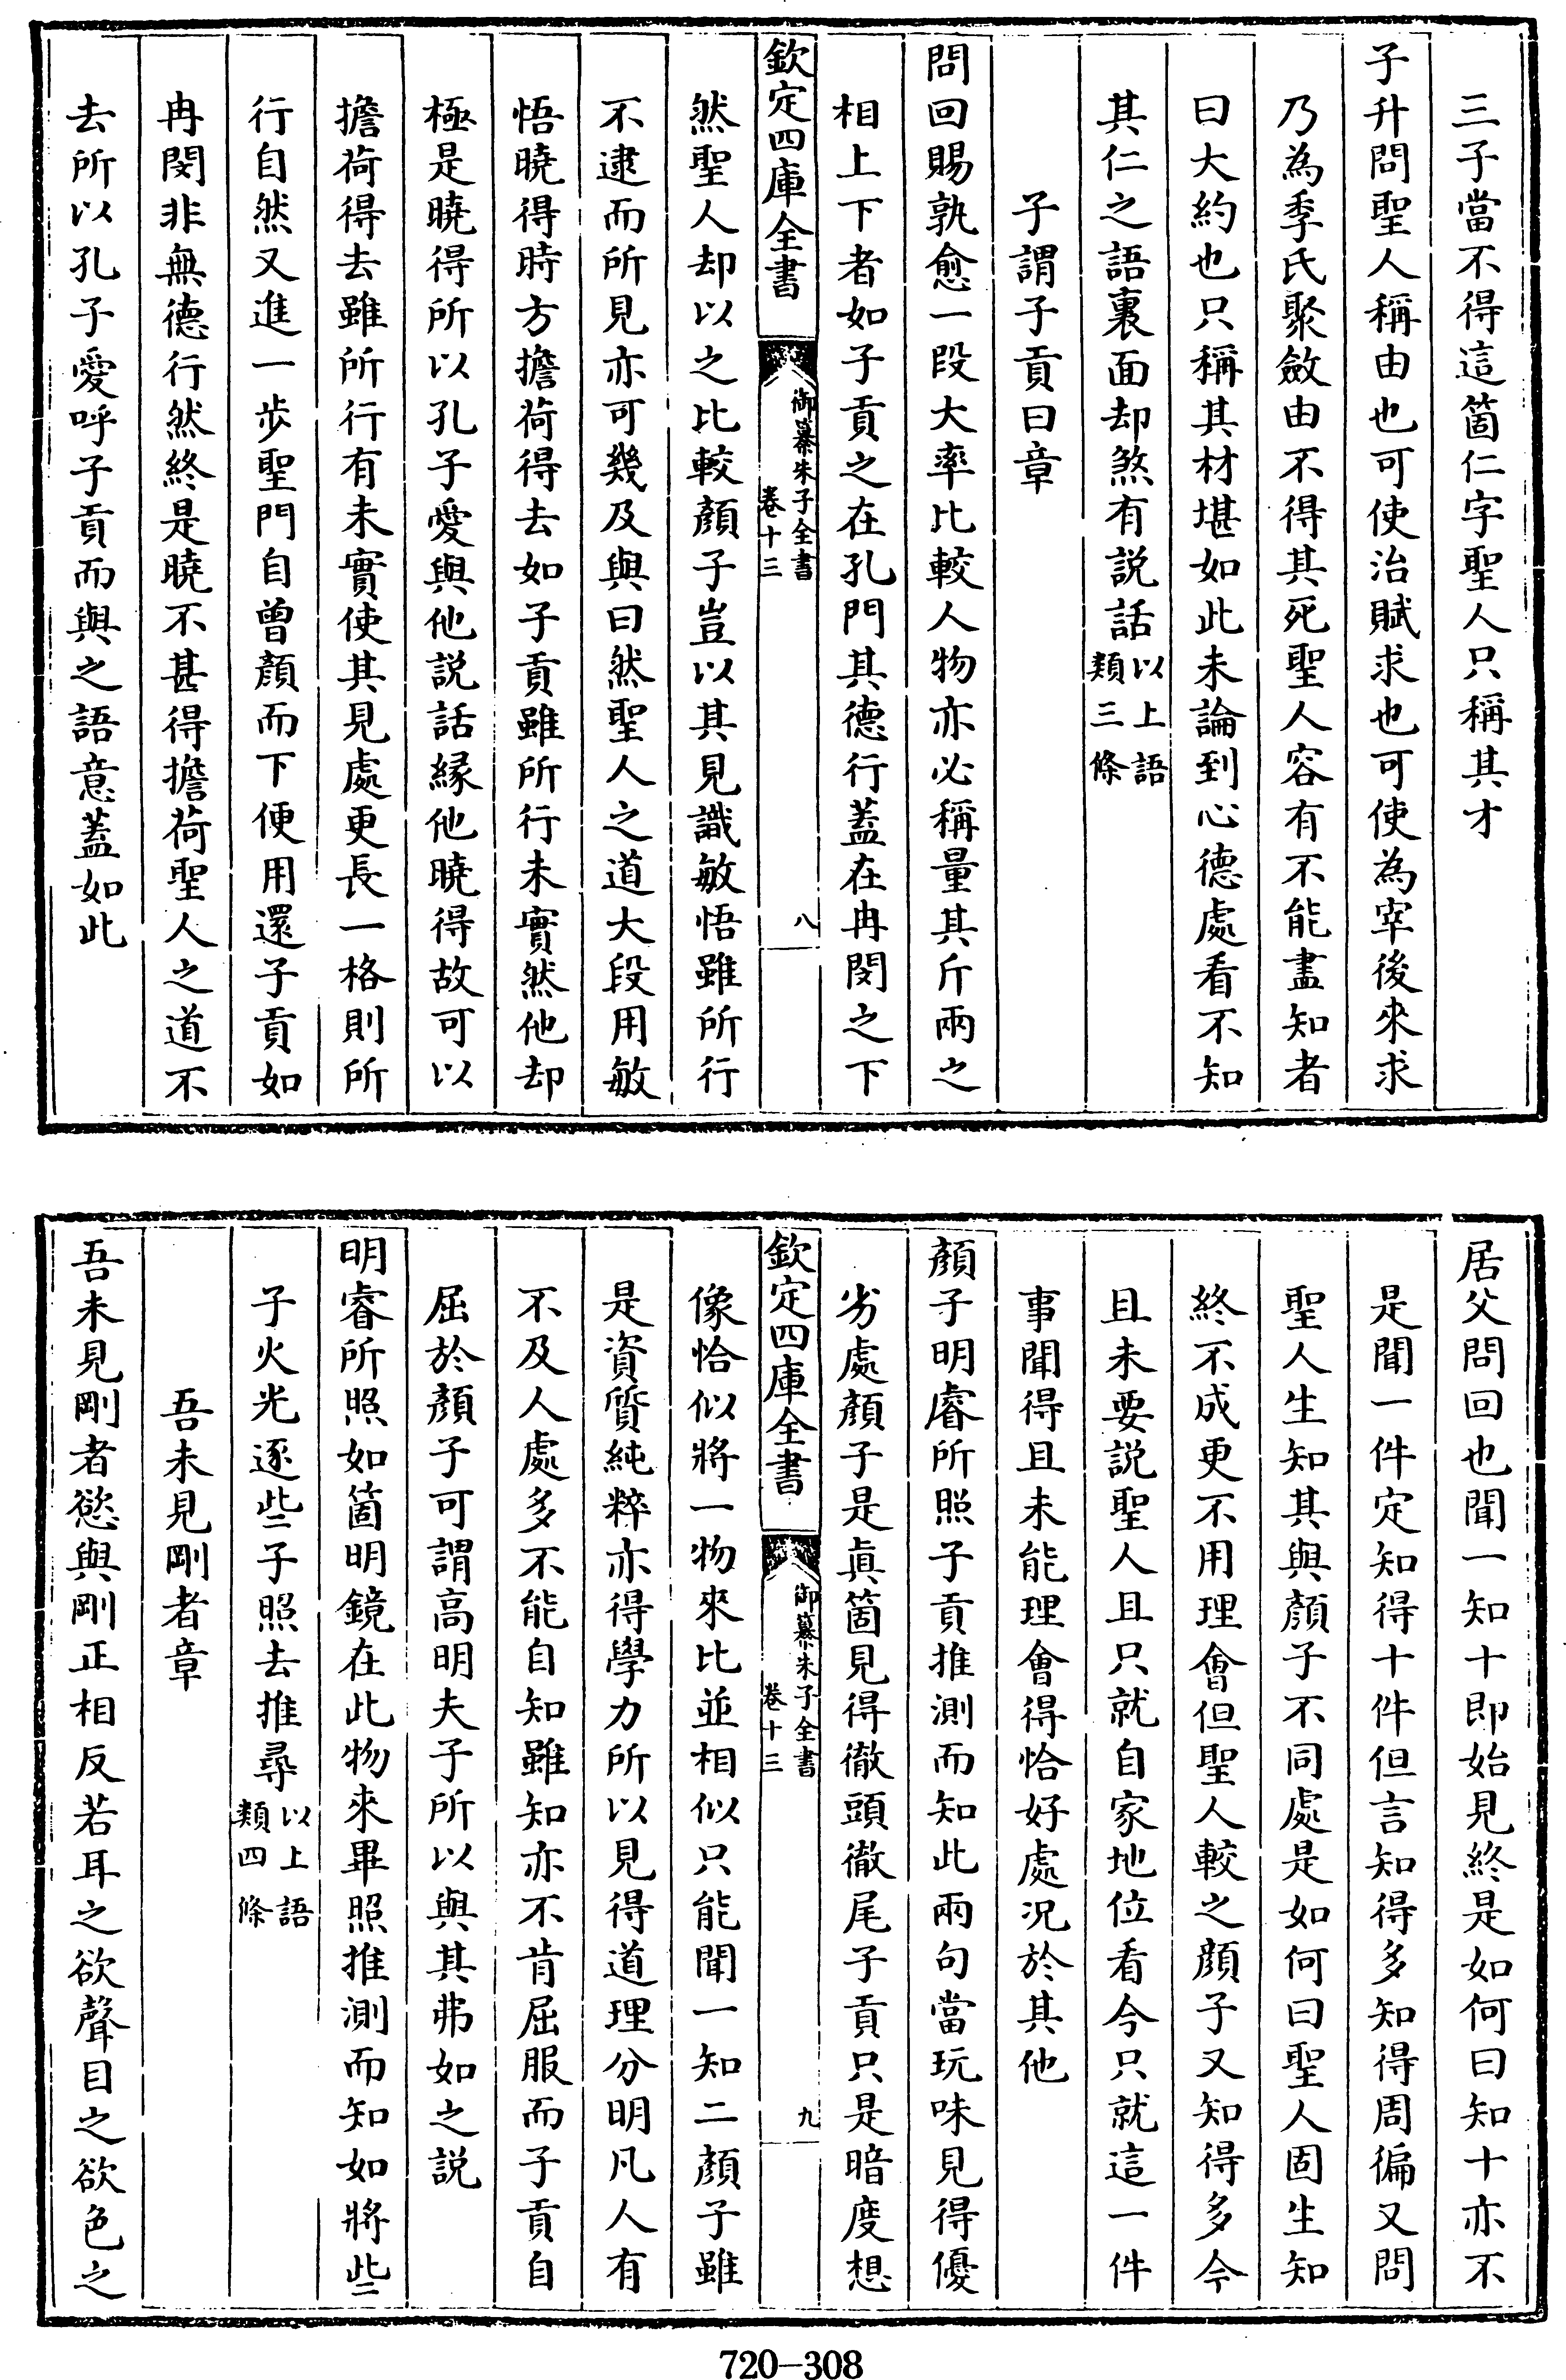 三子當不得這箇仁字聖人只稱其才
子升問聖人稱由也可使治賦求也可使為宰後來求
乃為季氏聚斂由不得其死聖人容有不能盡知者
曰大約也只稱其材堪如此未論到心德處看不知
其仁之語裏面却煞有説話以上語類三條
子謂子貢曰章
問回賜孰愈一段大率比較人物亦必稱量其斤兩之
相上下者如子貢之在孔門其德行蓋在冉閔之下
欽定四庫全書
御纂朱子全書
卷十三
八
然聖人却以之比較顏子豈以其見識敏悟雖所行
不逮而所見亦可幾及與曰然聖人之道大段用敏
悟曉得時方擔荷得去如子貢雖所行未實然他却
極是曉得所以孔子愛與他説話緣他曉得故可以
擔荷得去雖所行有未實使其見處更長一格則所
行自然又進一步聖門自曾顏而下便用還子貢如
冉閔非無德行然終是曉不甚得擔荷聖人之道不
去所以孔子愛呼子貢而與之語意蓋如此
居父問回也聞一知十即始見終是如何曰知十亦不
是聞一件定知得十件但言知得多知得周徧又問
聖人生知其與顏子不同處是如何曰聖人固生知
終不成更不用理會但聖人較之顏子又知得多今
且未要説聖人且只就自家地位看今只就這一件
事聞得且未能理會得恰好處況於其他
顏子明睿所照子貢推測而知此兩句當玩味見得優
劣處顏子是真箇見得徹頭徹尾子貢只是暗度想
欽定四庫全書
御纂朱子全書
卷十三
九
像恰似將一物來比並相似只能聞一知二顏子雖
是資質純粹亦得學力所以見得道理分明凡人有
不及人處多不能自知雖知亦不肯屈服而子貢自
屈於顏子可謂高明夫子所以與其弗如之説
明睿所照如箇明鏡在此物來畢照推測而知如將些
子火光逐些子照去推尋以上語類四條
吾未見剛者章
吾未見剛者慾與剛正相反若耳之欲聲目之欲色之
720-308